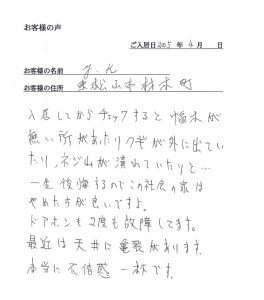 お客様の声
ご入居日 2015 年 4 月 日
お客様の名前 y.k
お客様の住所 東松山市材木町
入居してからチェックすると幅木が
無い所があたりクギが外に出てい
たり、ネジ山が潰れていたりと…
一生後悔するのでこの社の家は
やめた方が良いですよ。
ドアホンも2度も故障してます。
最近は天井に亀裂があります。
本当に不信感一杯です。